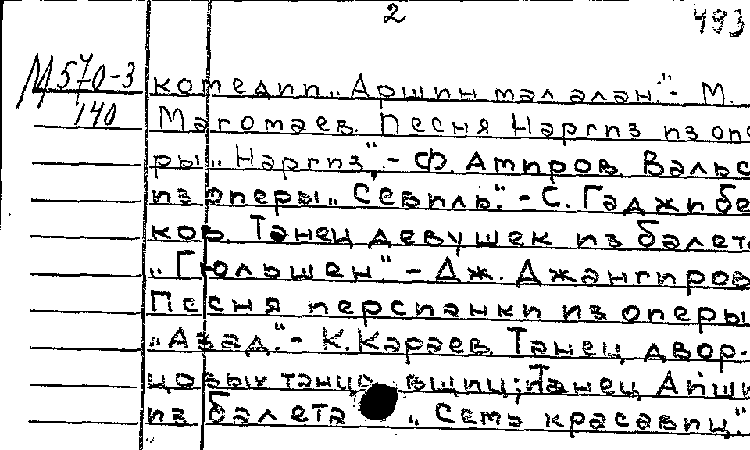 2 493
М570-3 комедии „Аршин мал алан." - М.
140 Магомаев. Песня Наргиз из опе
ры „Наргиз", - Ф. Амиров. Вальс
из оперы „Севиль". - С. Гаджибе
ков. Танец девушек из балета
„Гюльшен" - Дж. Джангиров
Песня персианки из оперы
„Азад." - К. Караев. Танец двор-
цовых танцовщиц; Танец Айши
из балета „Семь красавиц."